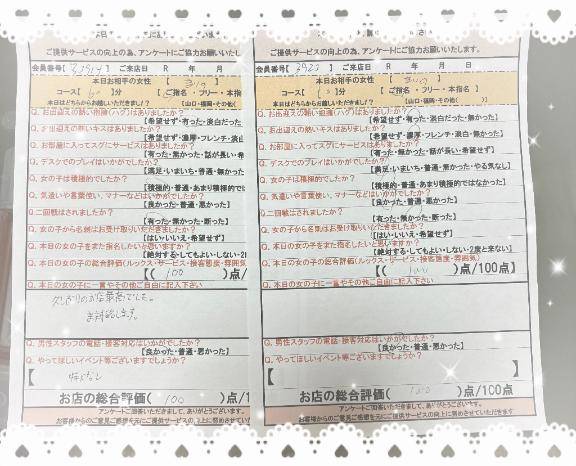 ご提供サービスの向上の為、アンケートにご協力お願いいたし
会員番号【
】ご来店日 R 年 月
本日お相手の女性 【
コース【60 分 【ご指名・フリー・本指
本日はどちらからお越しいただきましたか？ 【山口・福岡・その他(
Q. お出迎えの熱い抱擁(ハグ)はありましたか？
【希望せず・有った・淡白だった
Q. お出迎えの熱いキスはありましたか？
【希望せず・濃厚・フレンチ・淡白
Q. お部屋に入ってスグにサービスはありましたか？
【有った・無かった・話が長い・希
Q. デスクでのプレイはいかがでしたか？
【満足・いまいち・普通・無かった
Q. 女の子は積極的でしたか？
【積極的・普通・あまり積極的で
Q. 気遣いや言葉使い、マナーなどはいかがでしたか？
【良かった・普通・悪かった】
Q. 二回戦はされましたか？
【有った・無かった・断った】
Q. 女の子から名刺はお受け取りいただきましたか？
【はい・いいえ・希望せず】
Q. 本日の女の子をまた指名したいと思いますか？
【絶対する・してもよい・しない・2
Q. 本日の女の子の総合評価(ルックス・サービス・接客態度・雰囲気
【( 100 )点/
Q. 本日の女の子に一言やその他ご自由に記入下さい
久しぶりのお店最高でした。
Q. 男性スタッフの電話・接客対応はいかがでしたか？
【良かった・普通・悪かった】
Q. やってほしいイベント等ございますでしょうか？
【 特になし
お店の総合評価( 100 )点/1
アンケートご回答いただきまして、ありがとうございます。
お客様からのご意見ご感想を元にご提供サービスの向上に努めさせていただ
ご提供サービスの向上の為、アンケートにご協力お願いいたします。
会員番号【 】ご来店日 R 年 月 日
本日お相手の女性 【 】
コース【 分 【ご指名・フリー・本指名】
本日はどちらからお越しいただきましたか？ 【山口・福岡・その他( )】
Q. お出迎えの熱い抱擁(ハグ)はありましたか？
【希望せず・有った・淡白だった・無かった
Q. お出迎えの熱いキスはありましたか？
【希望せず・濃厚・フレンチ・淡白・無かった】
Q. お部屋に入ってスグにサービスはありましたか？
【有った・無かった・話が長い・希望せず】
Q. デスクでのプレイはいかがでしたか？
【満足・いまいち・普通・無かった・やる気なし】
Q. 女の子は積極的でしたか？
【積極的・普通・あまり積極的ではなかった】
Q. 気遣いや言葉使い、マナーなどはいかがでしたか？
【良かった・普通・悪かった】
Q. 二回戦はされましたか？
【有った・無かった・断った】
Q. 女の子から名刺はお受け取りいただきましたか？
【はい・いいえ・希望せず】
Q. 本日の女の子をまた指名したいと思いますか？
【絶対する・してもよい・しない・2度と来ない】
Q. 本日の女の子の総合評価(ルックス・サービス・接客態度・雰囲気)
【( 100 )点/100点】
Q. 本日の女の子に一言やその他ご自由に記入下さい
Q. 男性スタッフの電話・接客対応はいかがでしたか？
【良かった・普通・悪かった】
Q. やってほしいイベント等ございますでしょうか？
【 】
お店の総合評価( 100 )点/100点
アンケートご回答いただきまして、ありがとうございます。
お客様からのご意見ご感想を元にご提供サービスの向上に努めさせていただきます